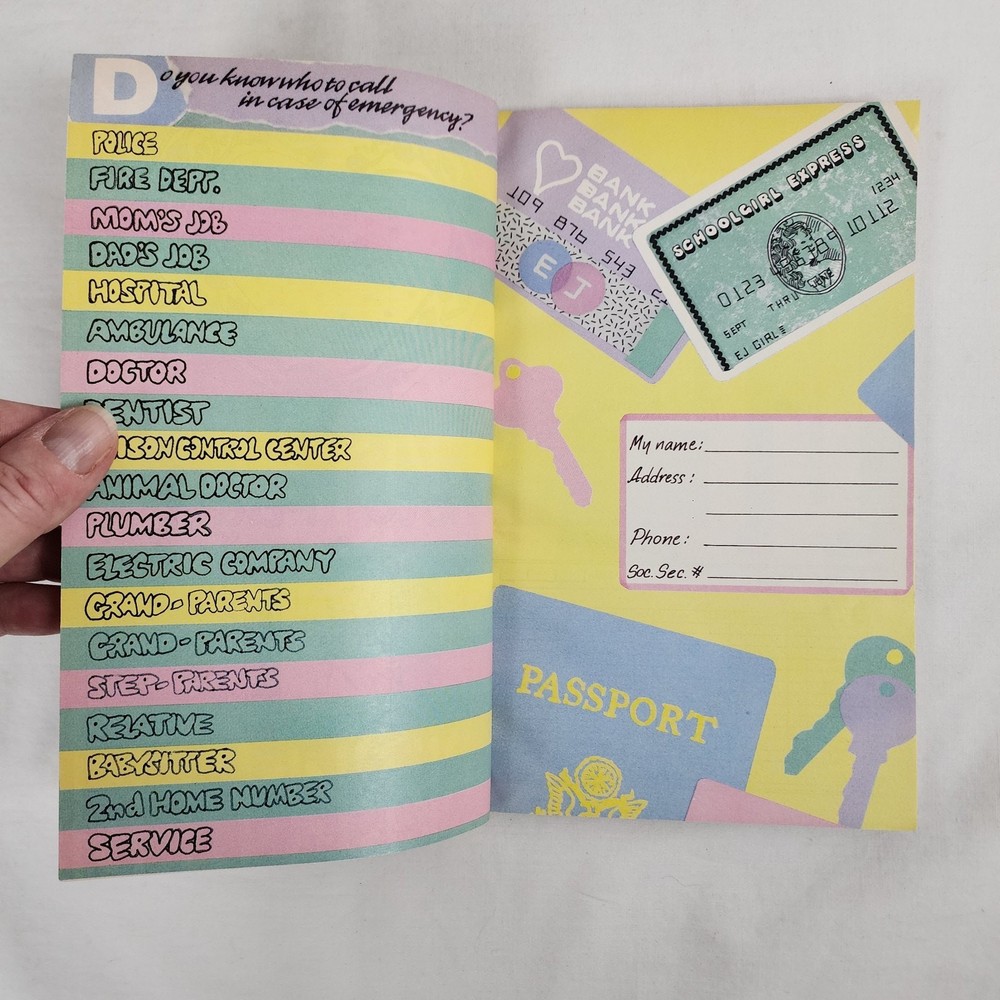 Do you know who to call
in case of emergency?
POLICE
FIRE DEPT.
MOM'S JOB
DAD'S JOB
HOSPITAL
AMBULANCE
DOCTOR
DENTIST
POISON CONTROL CENTER
ANIMAL DOCTOR
PLUMBER
ELECTRIC COMPANY
GRAND-PARENTS
GRAND-PARENTS
STEP-PARENTS
RELATIVE
BABYSITTER
2nd HOME NUMBER
SERVICE
BANK
BANK
BANK
109 876 543
E J
SCHOOLGIRL EXPRESS
1234
0123 789 10 11 12
SEPT THRU
EJ GIRL
My name:
Address:
Phone:
Soc. Sec. #
PASSPORT